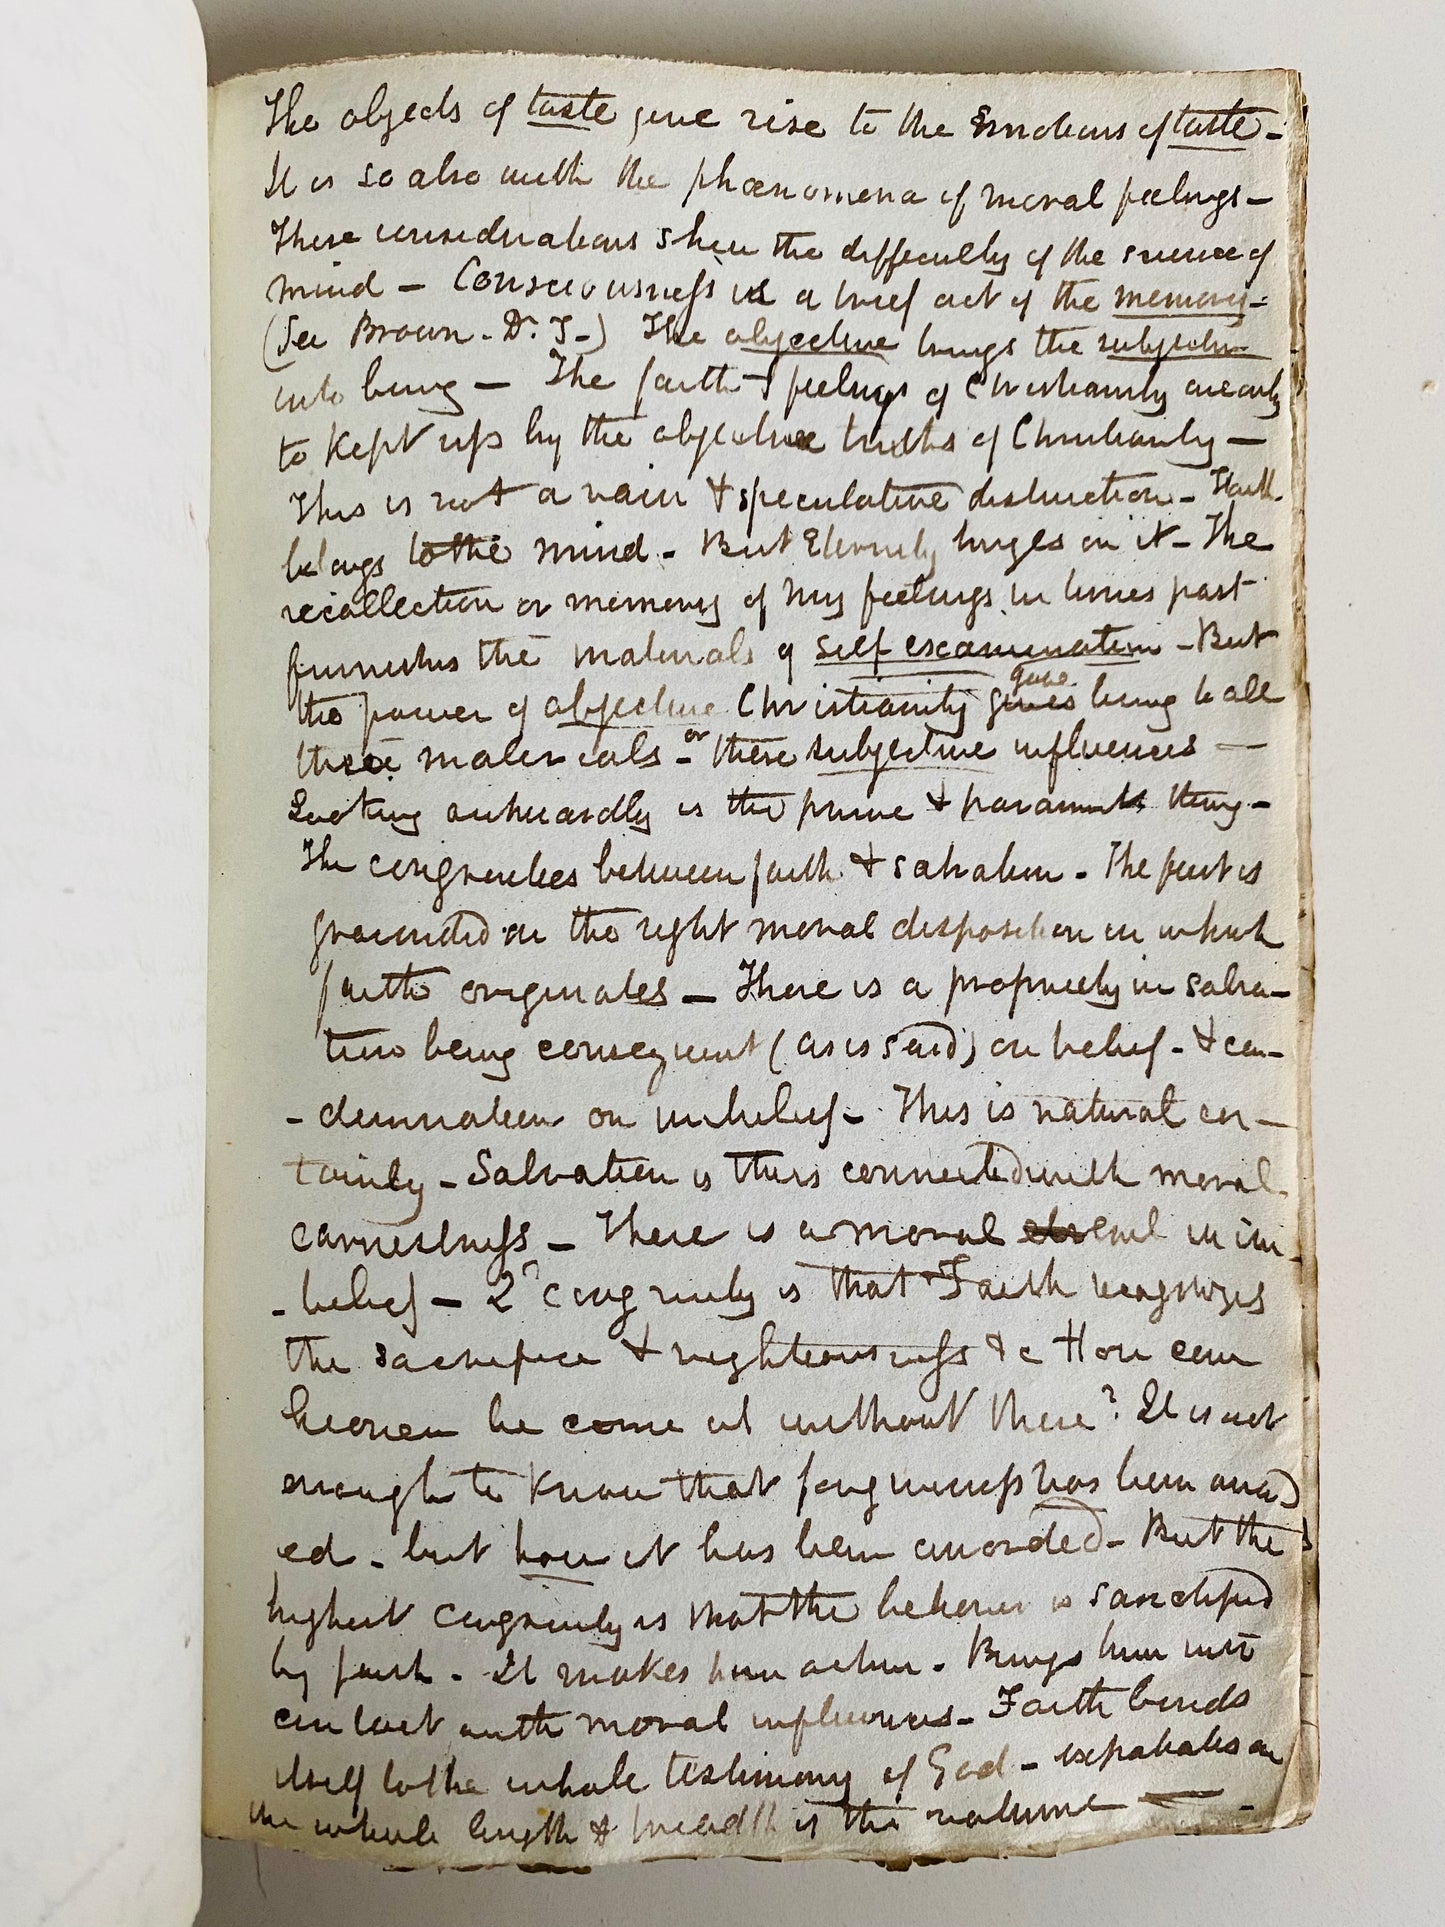 The objects of taste give rise to the Emotions of taste -
It is so also with the phœnomena of moral feelings -
These considerations shew the difficulty of the science of
mind - Consciousness is a brief act of the memory -
(See Brown - Dr. T-) The objective brings the subjective
into being - The faith & feelings of Christianity are only
to kept up by the objective truths of Christianity -
This is not a vain & speculative distinction - Faith
belongs to the mind - But Eternity hinges on it - The
recollection or memory of my feelings in times past
furnishes the materials of self examination - But
the power of objective Christianity gives gave being to all
these materials - or these subjective influences -
Looking outwardly is the prime & paramount thing -
The congruities between faith & salvation - The first is
grounded on the right moral disposition in which
faith originates - There is a propriety in salva-
tion being consequent (as is said) on belief - & con-
- demnation on unbelief - This is natural cer-
tainty - Salvation is thus connected with moral
earnestness - There is a moral evil in un-
- belief - 2d congruity is that Faith recognizes
the sacrifice & righteousness &c How can
heaven be come at without these? It is not
enough to know that forgiveness has been award
ed - but how it has been awarded - But the
highest congruity is that the believer is sanctified
by faith - It makes him active - Brings him into
contact with moral influences - Faith binds
itself to the whole testimony of God - expatiates on
the whole length & breadth of the volume -